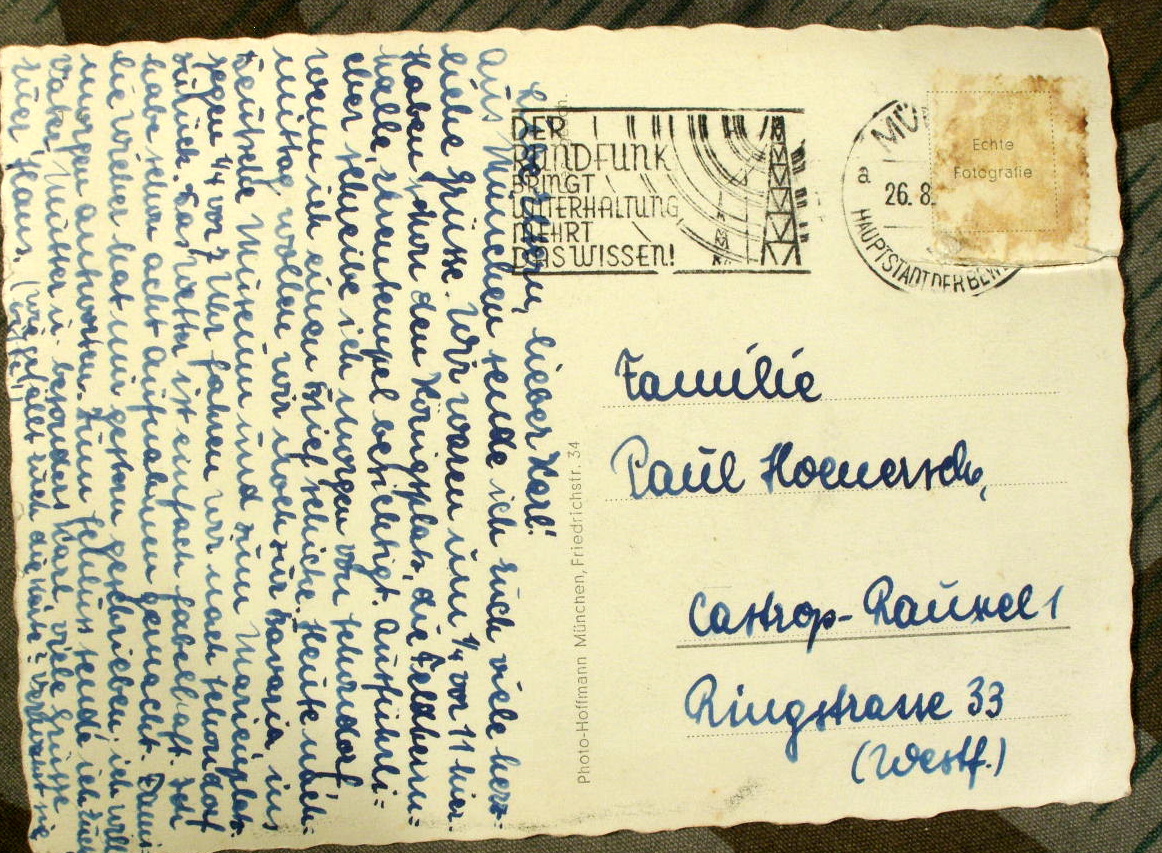 L. Eltern, lieber Karl!
Aus München sende ich Euch viele herz-
liche Grüsse. Wir waren um ¼ vor 11 hier.
Haben schon den Königsplatz, die Feldherrn-
halle, Ehrentempel besichtigt. Ausführli-
cher schreibe ich morgen von Schondorf
wenn ich einen Brief schicke. Heute nach-
mittag wollen wir noch zur Bavaria, ins
Deutsche Museum und zum Marienplatz.
Gegen ¼ vor 7 Uhr fahren wir nach Schondorf
zurück. Das Wetter ist einfach fabelhaft. Ich
habe schon acht Aufnahmen gemacht.
lie wieder hat mir gestern geschrieben, ich will
morgen antworten. Zum Schluss sende ich Euch
Vater, Mutter u. besonders Karl viele Grüsse
Euer Klaus. (Wie gefällt Euch die Karte?
DER
RUNDFUNK
BRINGT
UNTERHALTUNG
MEHRT
DAS WISSEN!
MÜ
a 26.8.
HAUPTSTADT DER BEW
Echte
Fotografie
Photo-Hoffmann München, Friedrichstr. 34
Familie
Paul Hoenersch,
Castrop-Rauxel 1
Ringstrasse 33
(Westf.)